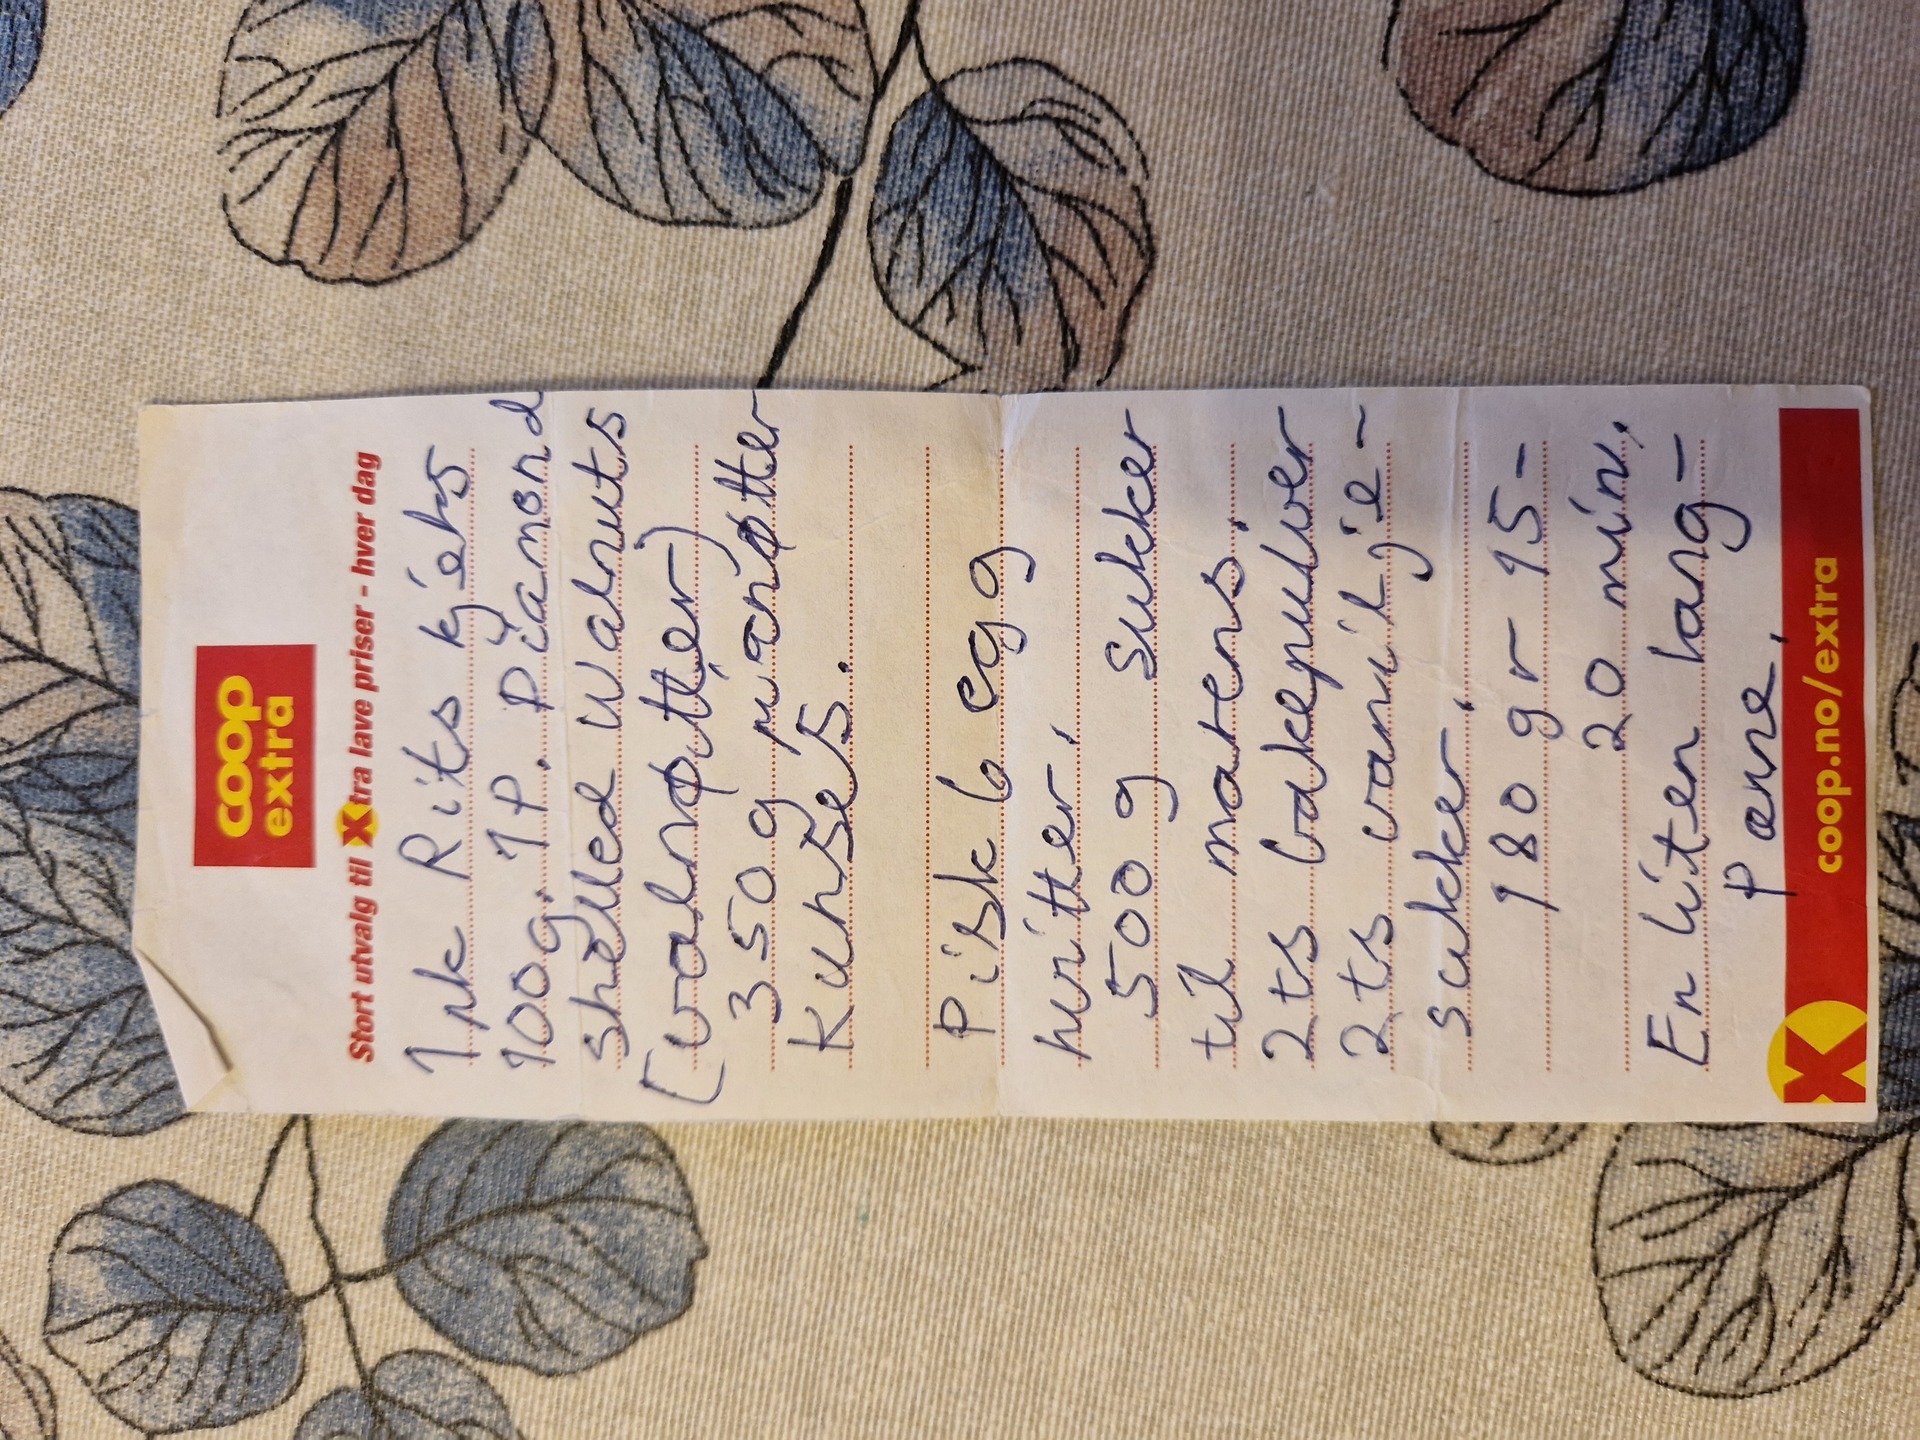 coop
extra
Stort utvalg til Xtra lave priser - hver dag
1 pk Rits kjeks
100g. 1P. Diamond
shelled Walnuts
(valnøtter)
350g pianøtter
Kunses.
Pisk 6 egg
hvitter.
500 g sukker
til marens.
2 ts bakepulver
2 ts vanilje-
sukker.
180 gr 15-
20 min.
En liten lang-
Panne.
X
coop.no/extra